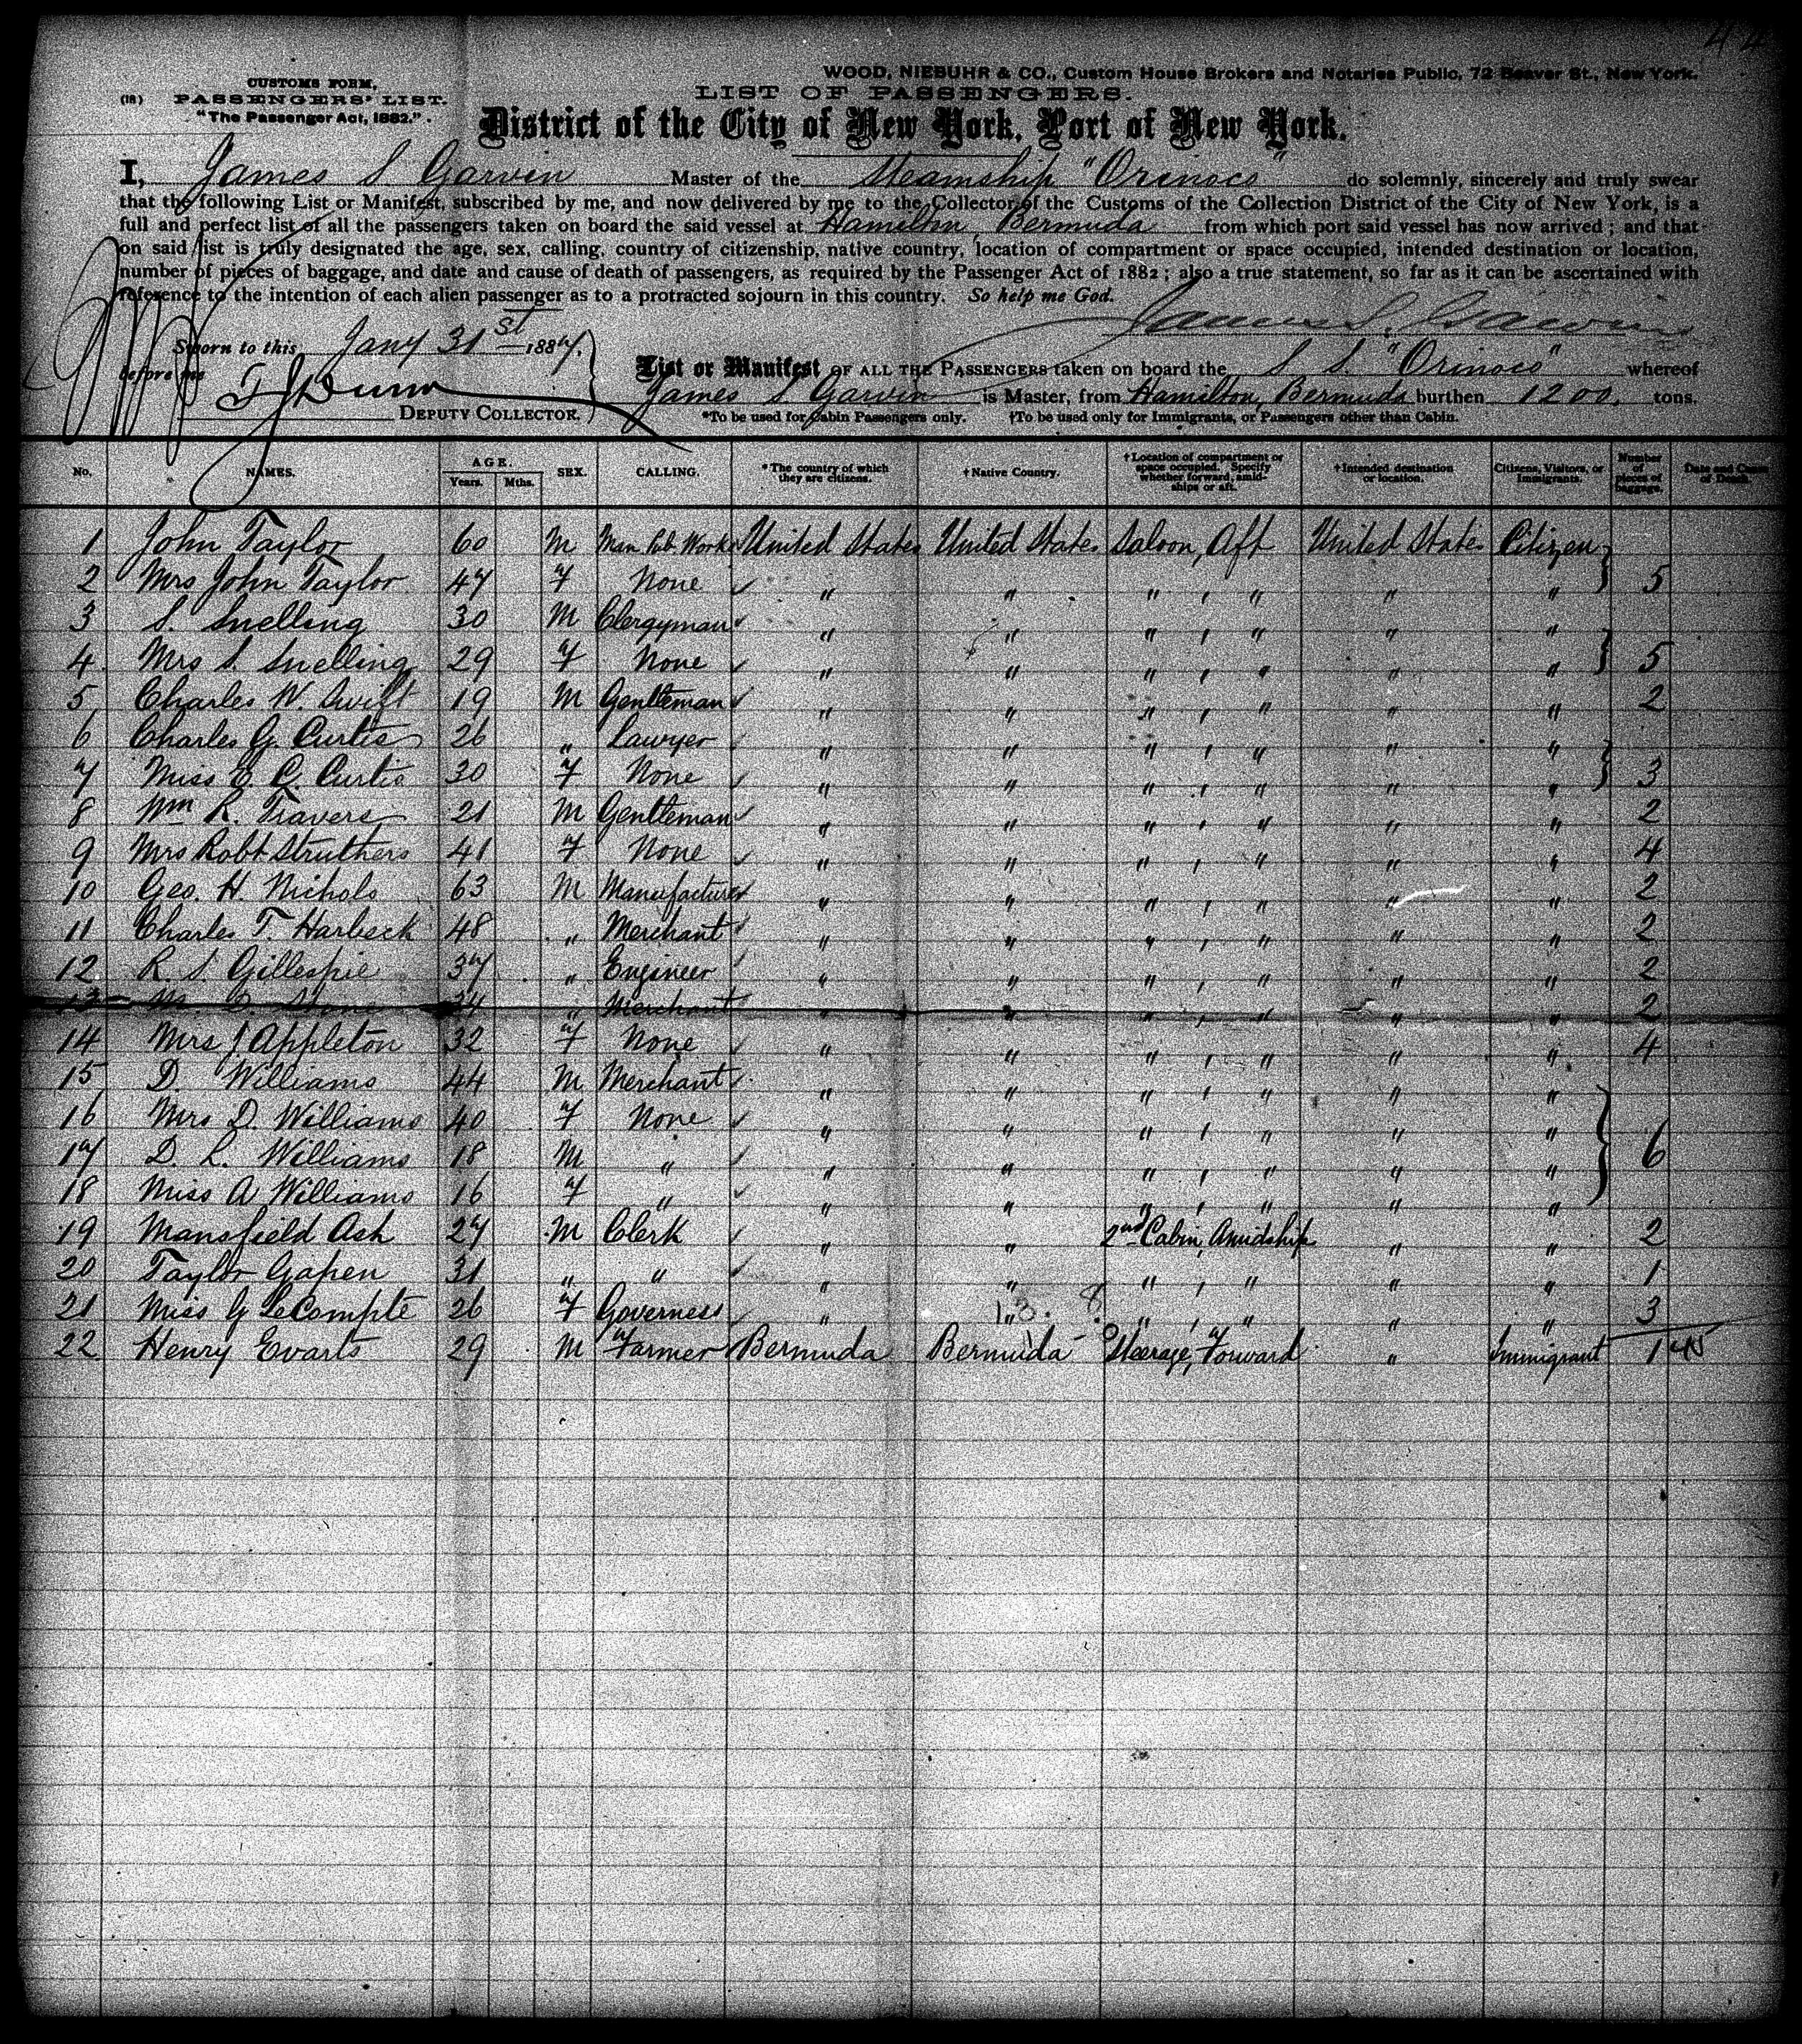 44
WOOD, NIEBUHR & CO., Custom House Brokers and Notaries Public, 72 Beaver St., New York.
CUSTOMS FORM,
(18) PASSENGERS' LIST.
"The Passenger Act, 1882."
LIST OF PASSENGERS.
District of the City of New York, Port of New York.
I, James S. Garvin Master of the Steamship "Orinoco" do solemnly, sincerely and truly swear
that the following List or Manifest, subscribed by me, and now delivered by me to the Collector of the Customs of the Collection District of the City of New York, is a
full and perfect list of all the passengers taken on board the said vessel at Hamilton, Bermuda from which port said vessel has now arrived; and that
on said list is truly designated the age, sex, calling, country of citizenship, native country, location of compartment or space occupied, intended destination or location,
number of pieces of baggage, and date and cause of death of passengers, as required by the Passenger Act of 1882; also a true statement, so far as it can be ascertained with
reference to the intention of each alien passenger as to a protracted sojourn in this country. So help me God.
James S. Garvin
Sworn to this Jany 31st 1887.
before me
T J Dunn
DEPUTY COLLECTOR.
List or Manifest OF ALL THE PASSENGERS taken on board the S. S. "Orinoco" whereof
James S. Garvin is Master, from Hamilton, Bermuda burthen 1200. tons.
*To be used for Cabin Passengers only. †To be used only for Immigrants, or Passengers other than Cabin.
No. NAMES. AGE. Years. Mths. SEX. CALLING. *The country of which they are citizens. †Native Country. †Location of compartment or space occupied. Specify whether forward, amidships or aft. †Intended destination or location. Citizens, Visitors, or Immigrants. Number of pieces of baggage. Date and Cause of Death.
1 John Taylor 60 M Man. Pub. Works United States United States Saloon, Aft United States Citizen
2 Mrs John Taylor 47 F None " " " , " " " 5
3 S. Snelling 30 M Clergyman " " " , " " "
4 Mrs S. Snelling 29 F None " " " , " " " 5
5 Charles W. Swift 19 M Gentleman " " " , " " " 2
6 Charles G. Curtis 26 " Lawyer " " " , " " "
7 Miss E. C. Curtis 30 F None " " " , " " " 3
8 Wm R. Travers 21 M Gentleman " " " , " " " 2
9 Mrs Robt Struthers 41 F None " " " , " " " 4
10 Geo. H. Nichols 63 M Manufacturer " " " , " " " 2
11 Charles T. Harbeck 48 " Merchant " " " , " " " 2
12 R. S. Gillespie 37 " Engineer " " " , " " " 2
13 Stone " Merchant " " " , " " " 2
14 Mrs J Appleton 32 F None " " " , " " " 4
15 D. Williams 44 M Merchant " " " , " " "
16 Mrs D. Williams 40 F None " " " , " " "
17 D. L. Williams 18 M " " " " , " " " 6
18 Miss A Williams 16 F " " " " , " " "
19 Mansfield Ash 27 M Clerk " " 2nd Cabin, Amidship " " 2
20 Taylor Gapen 31 " " " " " , " " " 1
21 Miss G LeCompte 26 F Governess " " " , " " " 3
22 Henry Evarts 29 M Farmer Bermuda Bermuda Steerage, Forward " Immigrant 1 45